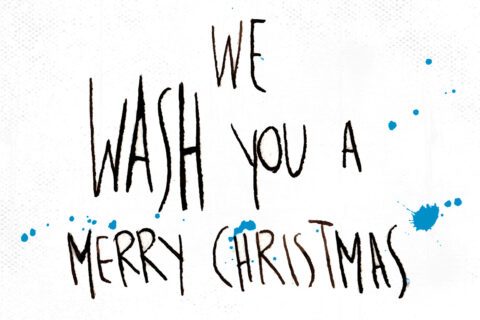 WE
WASH YOU A
MERRY CHRISTMAS